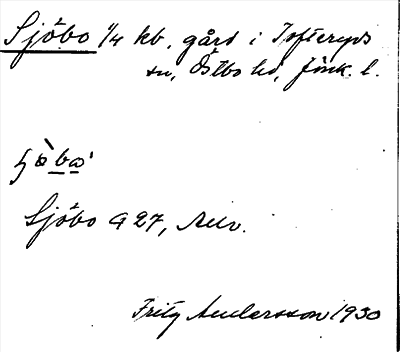 Sjöbo 1/4 kb. gård i Tofteryds
sn, Östbo hd, Jönk. l.
Sjöbo a 27,
Fritz Andersson 1930